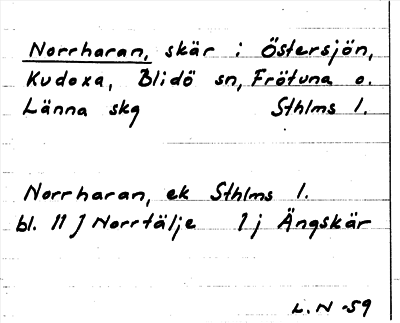 Norrharan, skär i Östersjön,
Kudoxa, Blidö sn, Frötuna o.
Länna skg Sthlms l.
Norrharan, ek Sthlms l.
bl. 11 J Norrtälje 1 j Ängskär
L. N -59